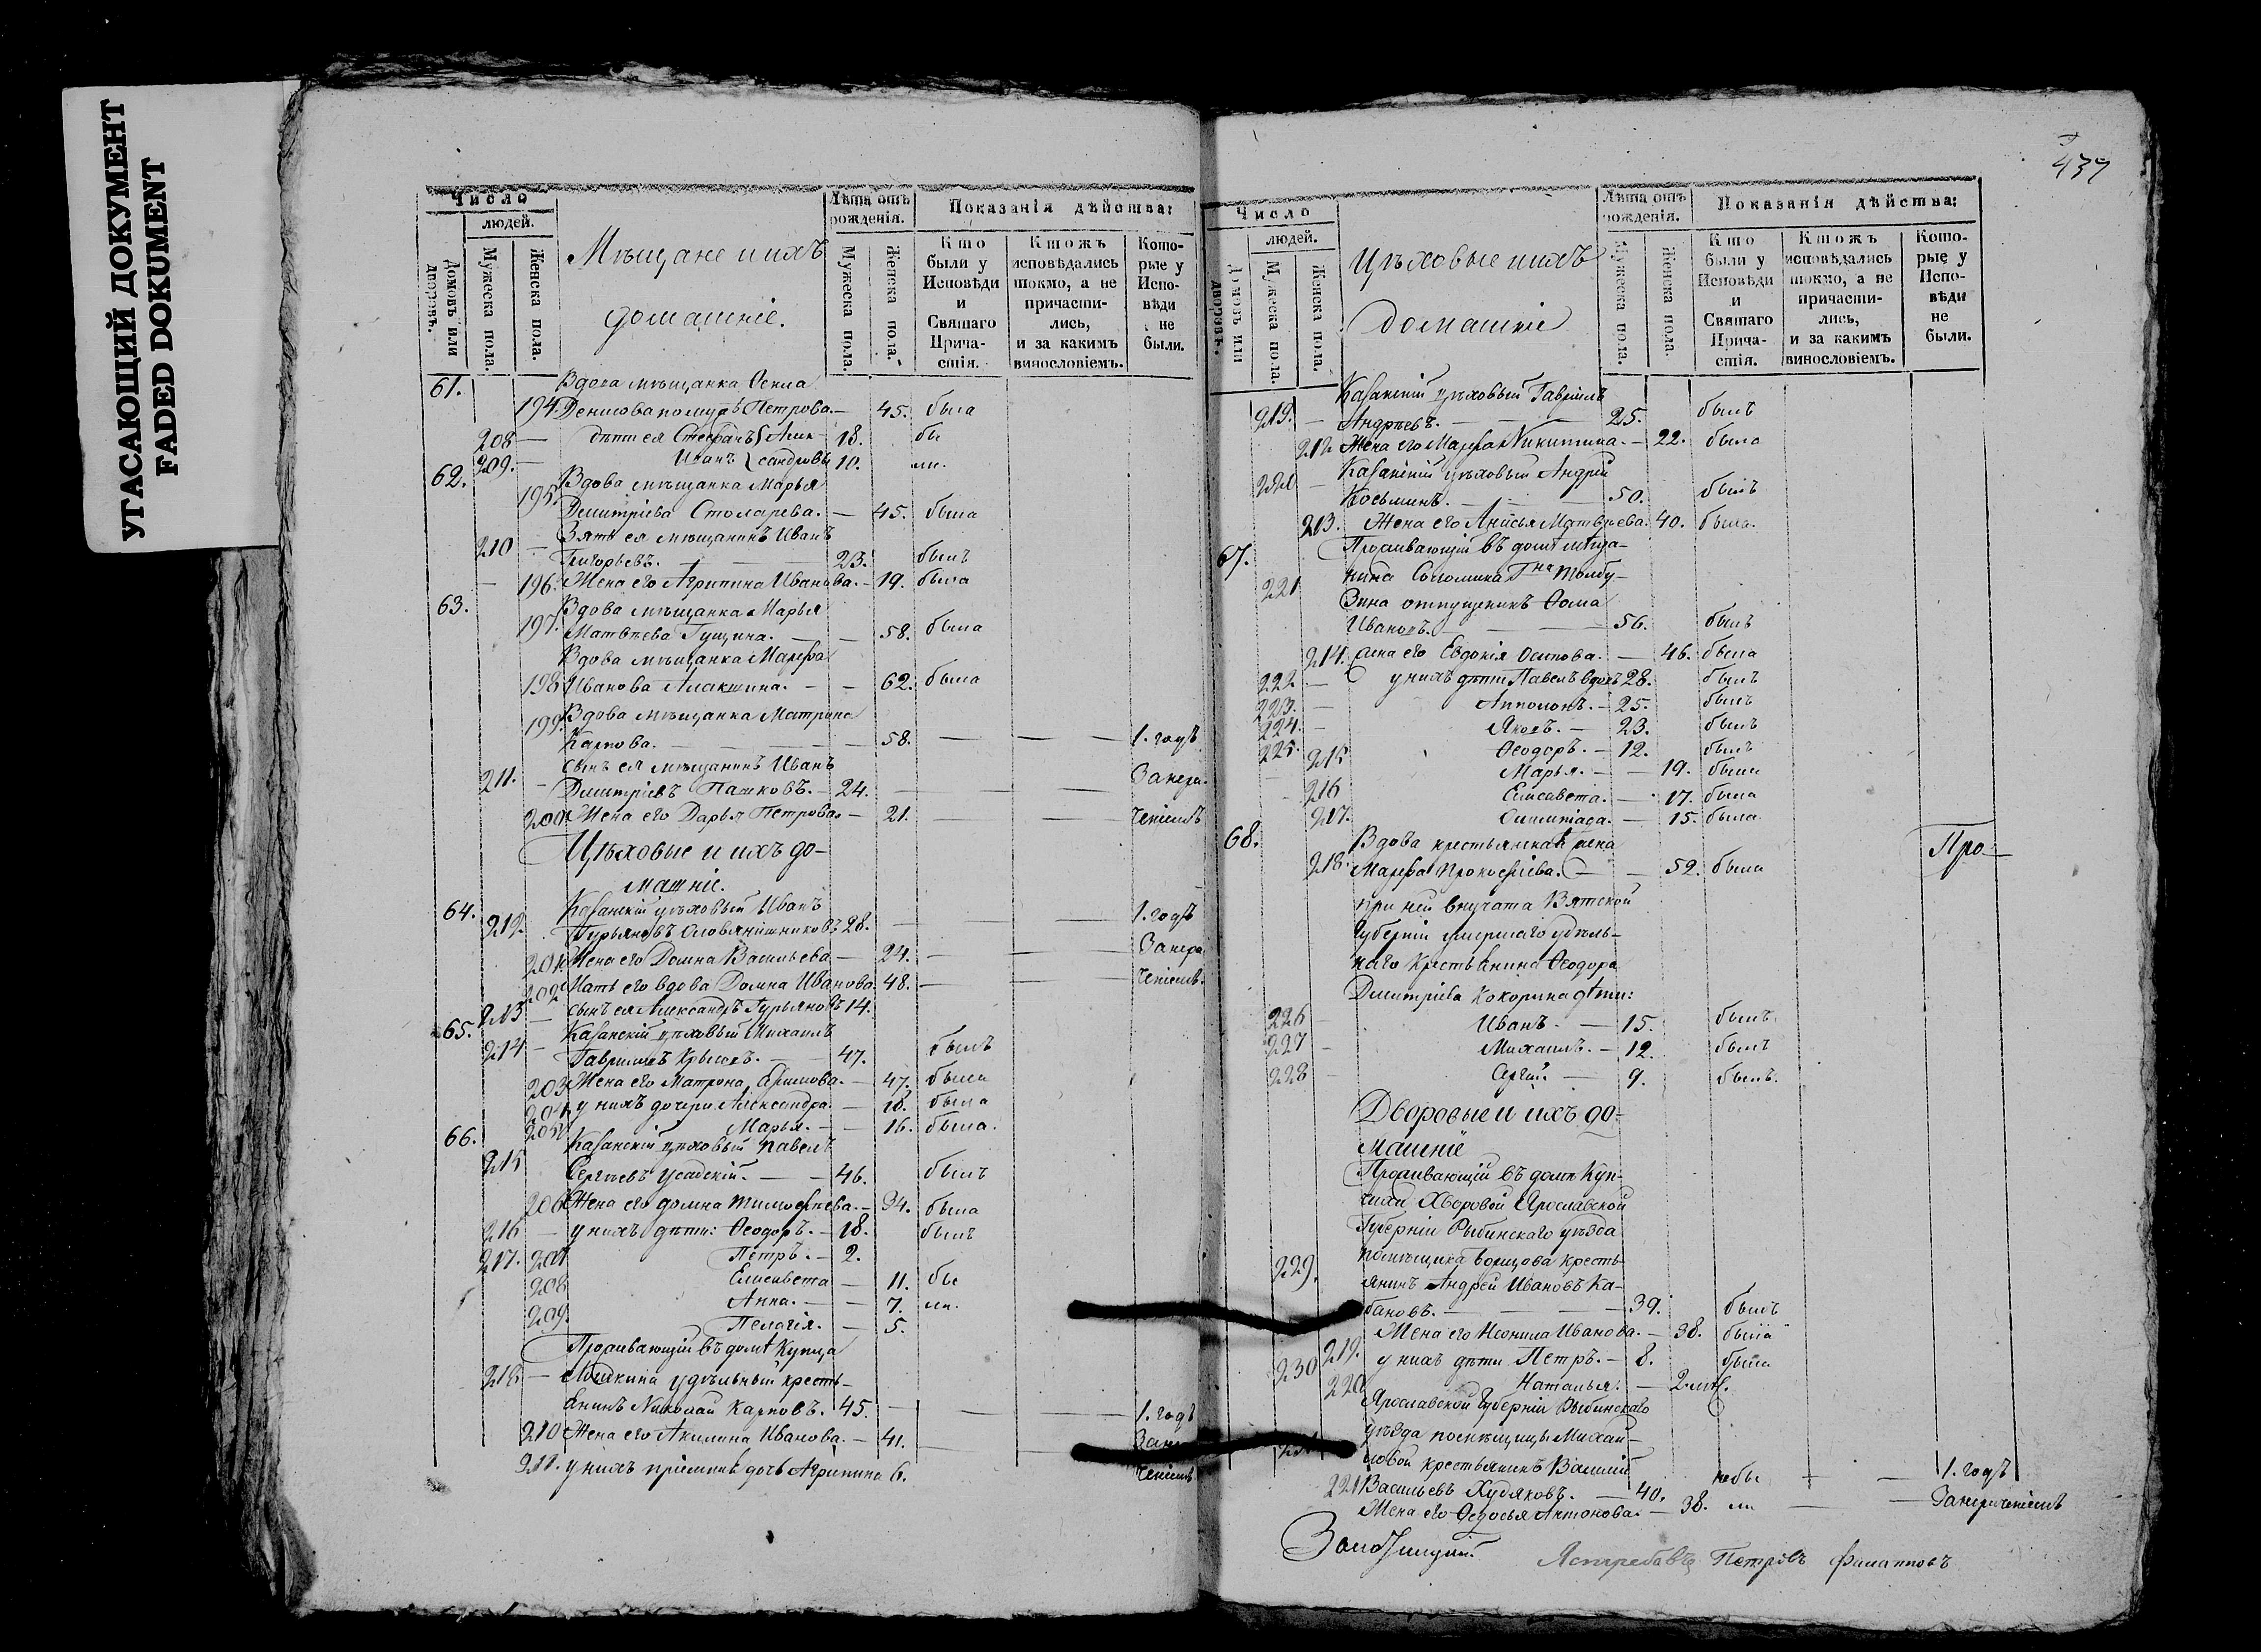 УГАСАЮЩИЙ ДОКУМЕНТ
FADED DOKUMENT
Число
людей.
Домовъ или дворовъ.
Мужеска пола.
Женска пола.
Мѣщане и ихъ
домашніе.
Лѣта отъ рожденія.
Мужеска пола.
Женска пола.
Показанія дѣйства:
Кто были у Исповѣди и Святаго Причастія.
Ктожъ исповѣдались токмо, а не причастились, и за какимъ винословіемъ.
Которые у Исповѣди не были.
61. Вдова мѣщанка
194. Денисова Петрова. — 45. была
208 — дѣти ея Стефанъ Алек- 18. бы
209. — Иванъ сандровы 10. ли.
62. Вдова мѣщанка Марья
195. Дмитріева Столарева. — 45. была
Зять ея мѣщанинъ Иванъ
210 — Григорьевъ. — 23. былъ
— 196. Жена его Агрипина Иванова. — 19. была
63. Вдова мѣщанка Марья
197. Матвѣева Гущина. — — 58. была
Вдова мѣщанка Марфа
198 Иванова — — 62. была
Вдова мѣщанка Матрена
199. Карпова. — 58. — — — 1. годъ
сынъ ея мѣщанинъ Иванъ
211. — Дмитріевъ Пашковъ. — 24. — — —
200. Жена его Дарья Петрова. — 21. — —
Цѣховые и ихъ до-
машніе.
64. Казанскій цѣховый Иванъ
212. Гурьяновъ 28. — — 1. годъ
201 Жена его Домна Васильева — 24. — —
202 Мать его вдова Домна Иванова 48. — —
213 — сынъ ея Александръ Гурьяновъ 14.
65. Казанскій цѣховый Михаилъ
214 — Гавриловъ — 47. былъ
203 Жена его Матрона — 47. была
204 у нихъ дочери Александра. — 18. была
205 Марья. — — 16. была.
66. Казанскій цѣховый Павелъ
215 Сергѣевъ Усадскій. — — 46. былъ
206 Жена его Домна Тимофѣева. — 34. была
216 — у нихъ дѣти: Ѳеодоръ. — 18. былъ
217. 207 Петръ. — 2.
208 Елисавета — 11. бы
209. Анна. — — 7. ли.
Пелагія. — 5.
Проживающій въ домѣ Купца
218 — удѣльный кресть-
янинъ Николай Карповъ. 45. — — — 1. годъ
210 Жена его Акилина Иванова. — 41. — —
211. у нихъ пріемная дочь Агрипина 6.
437
Число
людей.
Домовъ или дворовъ.
Мужеска пола.
Женска пола.
Цѣховые и ихъ
домашніе
Лѣта отъ рожденія.
Мужеска пола.
Женска пола.
Показанія дѣйства:
Кто были у Исповѣди и Святаго Причастія.
Ктожъ исповѣдались токмо, а не причастились, и за какимъ винословіемъ.
Которые у Исповѣди не были.
Казанскій цѣховый Гавріилъ
219. — Андреевъ. — 25. былъ
212 Жена его Марфа Никитина. — 22. была
Казанскій цѣховый Андрей
220 — Косьминъ. — 50. былъ
213. Жена его Анисья Матвѣева. 40. была.
67. Проживающій въ домѣ мѣща-
221 нина
отпущеникъ Ѳома
Ивановъ. — 56. былъ
214. жена его Евдокія Осипова. — 46. была
222 — у нихъ дѣти Павелъ вдовъ 28. былъ
223. — Апполонъ. — 25. былъ
224. — Яковъ. — 23. былъ
225. Ѳеодоръ. — 12. былъ
215 Марья. — — 19. была
216 Елисавета. — 17. была
217. — 15. была
68. Вдова крестьянская жена
218. Марфа Прокофіева. — — 52. была
Про-
при ней внучата Вятской
Губерніи умершаго удѣль-
наго крестьянина Ѳеодора
Дмитріева Кокорина дѣти:
226 — Иванъ. — 15. былъ
227 — Михаилъ. — 12. былъ
228 — Сергій. — 9. былъ.
Дворовые и ихъ до-
машніе
Проживающій въ домѣ Куп-
чихи Хворовой Ярославской
Губерніи Рыбинскаго уѣзда
229. помѣщика кресть-
янинъ Андрей Ивановъ Ка-
бановъ. — 39. былъ
Жена его Неонила Иванова. — 38. была
219.
230 у нихъ дѣти Петръ. — 8. была
220 Наталья. —
Ярославской Губерніи Рыбинскаго
уѣзда помѣщицы Михай-
ловой крестьянинъ Василій
Васильевъ Худяковъ. — 40. небы — — 1. годъ
221 Жена его Ѳедосья Антонова. — 38. ли — — Занерачениемъ
Ястребовъ Петровъ Филипповъ